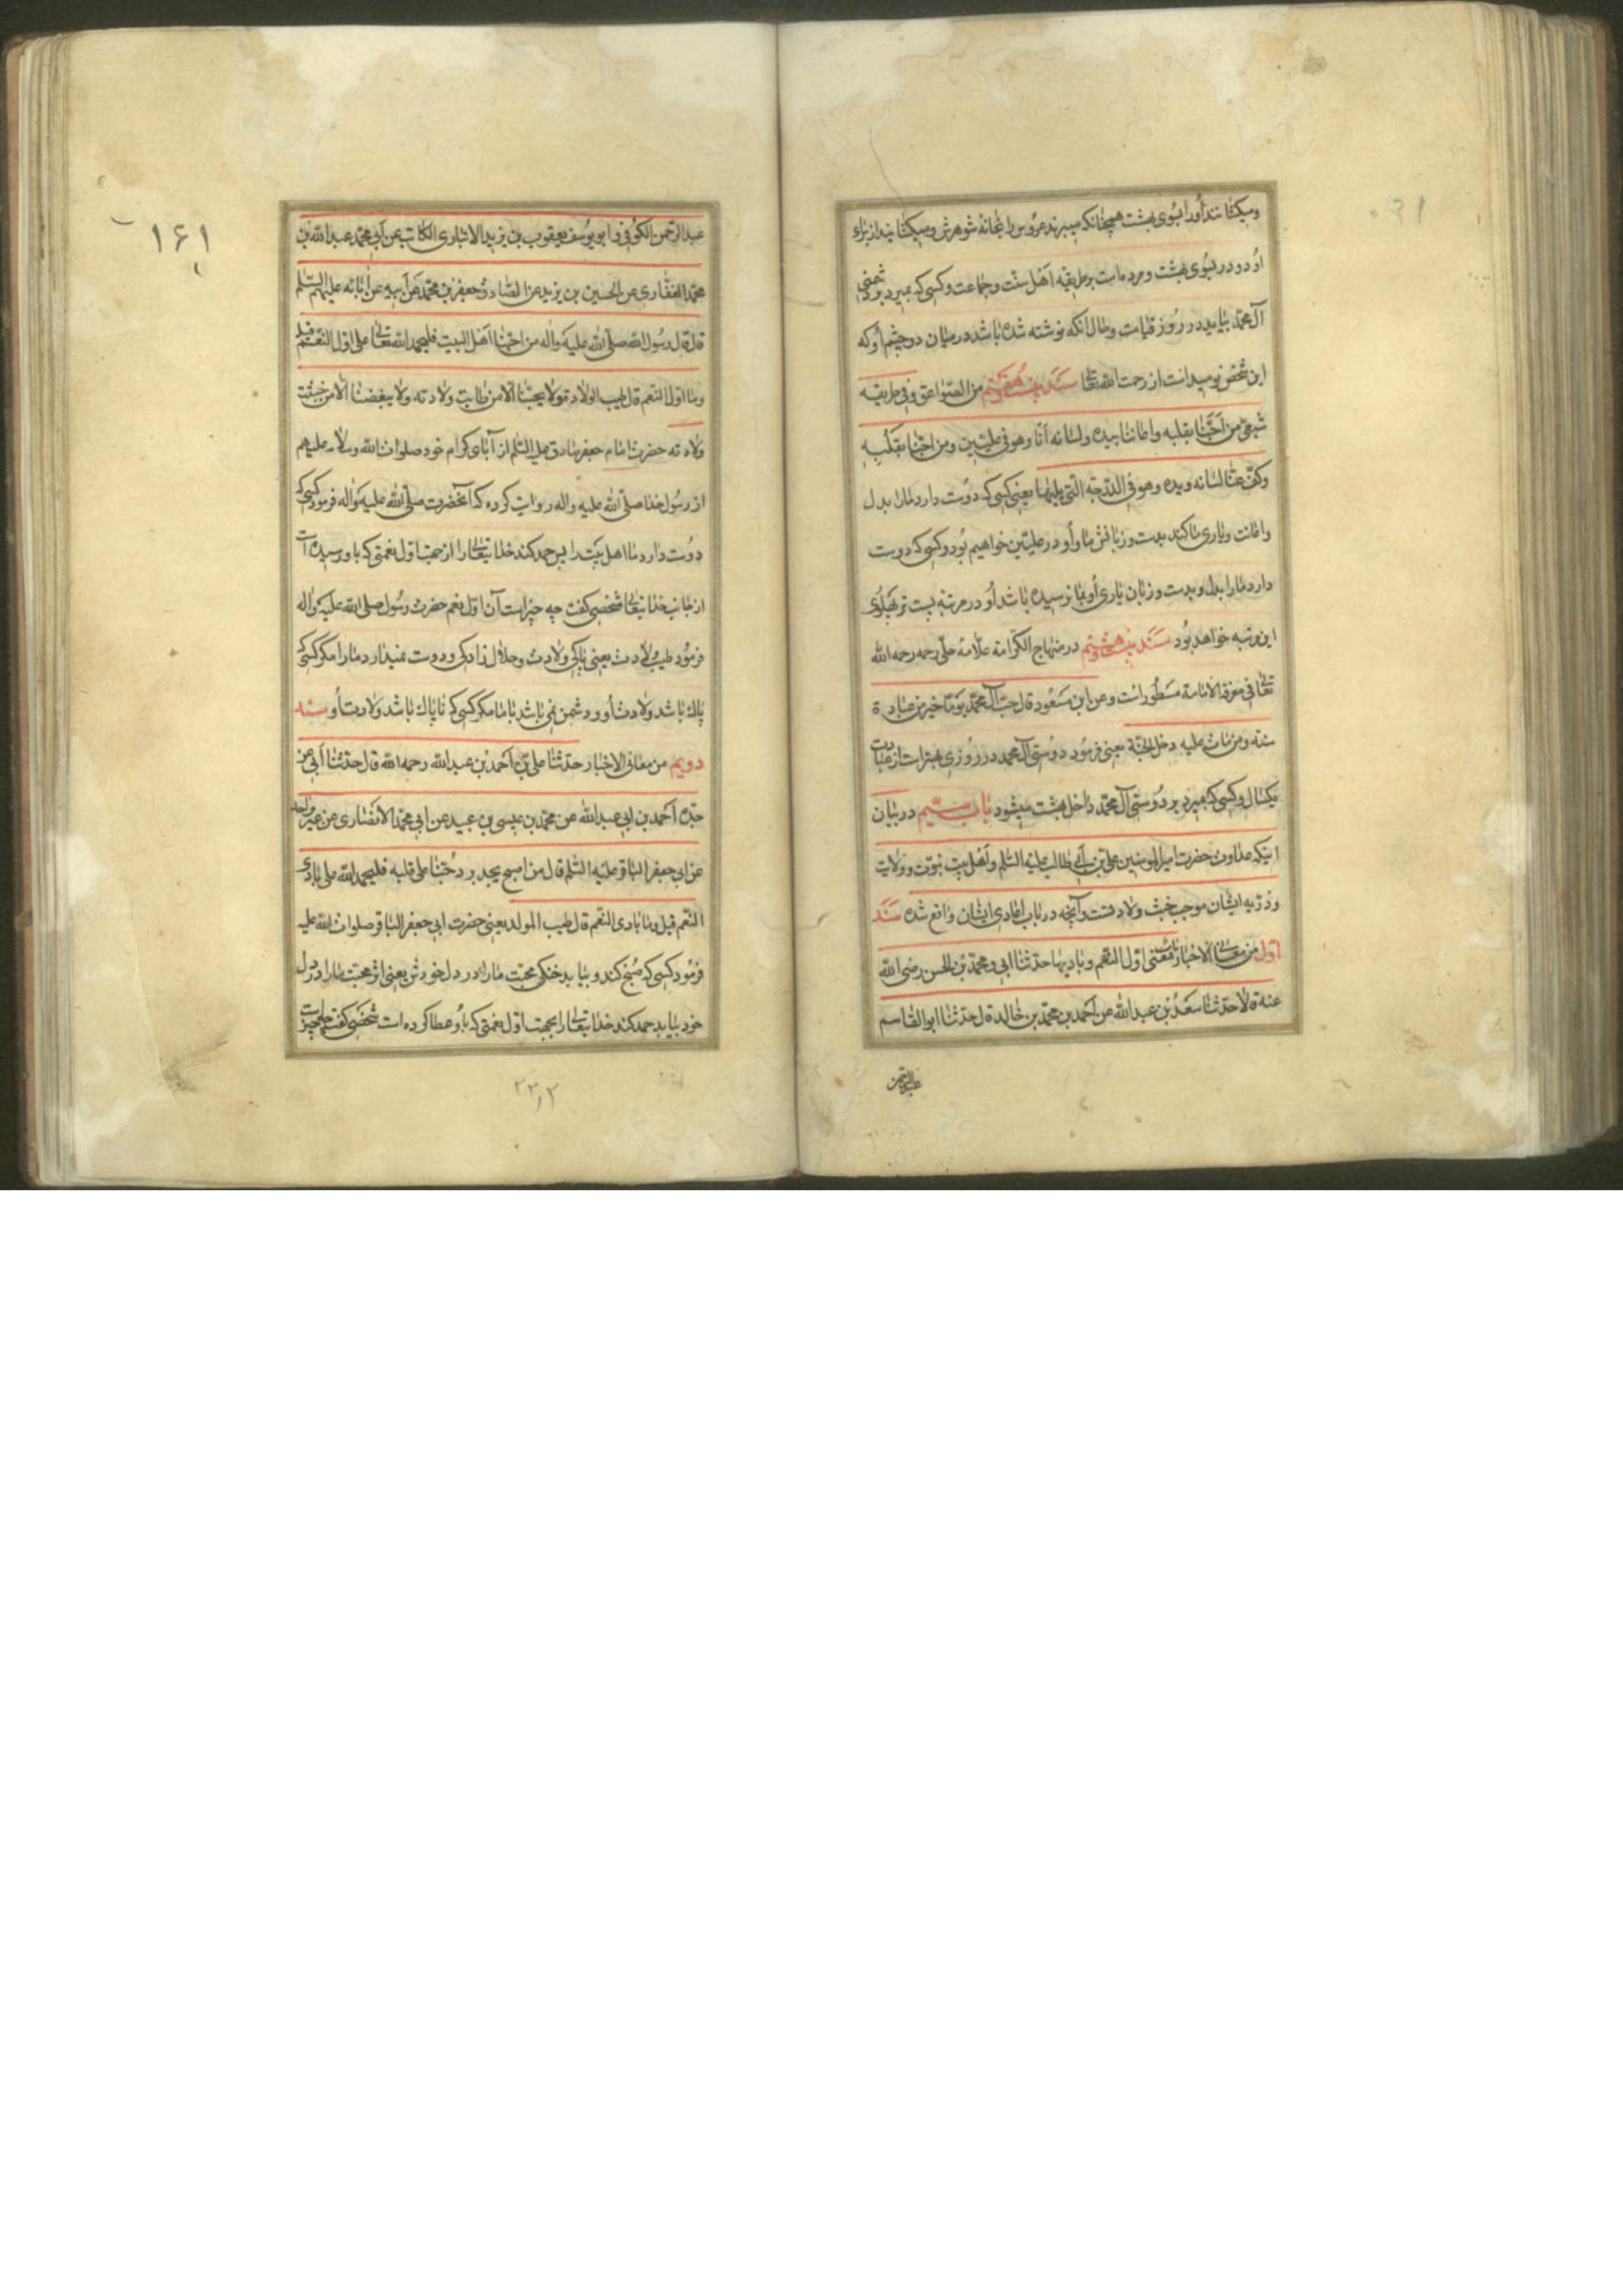 ومیکشانند اورا بسوی بهشت همچنانکه میبرند عروس را بخانه شوهرش ومیکشایند از برای
او دو در بسوی بهشت ومرده است بر طریقه اهل سنت وجماعت وکسی که بمیرد بر دشمنی
آل محمد بیاید در روز قیامت وحال آنکه نوشته شده باشد در میان دو چشم او که
این شخص نومید است از رحمت الله تعالی سند بیست وهفتم من الصواعق وفی طریقه
شیعی من احبنا بقلبه واعاننا بیده ولسانه انا وهو فی علیین ومن احبنا بقلبه
وکف عنا لسانه ویده وهو فی الدرجة التی یلیها یعنی کسی که دوست دارد مارا بدل
واعانت ویاری ما کند بدست وزبانش ما واو در علیین خواهیم بود وکسی که دوست
دارد مارا بدل وبدست وزبان یاری او بما نرسیده باشد او در مرتبه پست تر پهلوی
این مرتبه خواهد بود سند بیست وهشتم در منهاج الکرامة علامه حلی رحمه الله
تعالی فی معرفة الامامة مسطور است وعن ابن مسعود قال حب آل محمد یوما خیر من عبادة
سنة ومن مات علیه دخل الجنة یعنی فرمود دوستی آل محمد در روزی بهتر است از عبادت
یکسال وکسی که بمیرد بر دوستی آل محمد داخل بهشت میشود باب در بیان
اینکه عداوت حضرت امیر المومنین علی بن ابی طالب علیه السلم واهل بیت نبوت وولایت
وذریه ایشان موجب خبث ولادتست وآنچه در باب اعادی ایشان واقع شده سند
اول من معانی الاخبار باب معنی اول النعم وبادیها حدثنا ابی ومحمد بن الحسن رضی الله
عنه قالا حدثنا سعد بن عبد الله عن احمد بن محمد بن خالد قال حدثنا ابو القاسم
عبد الرحمن
۱۶۱
عبد الرحمن الکوفی وابو یوسف یعقوب بن یزید الانباری الکاتب عن ابی محمد عبد الله بن
محمد الغفاری عن الحسین بن یزید عن الصادق جعفر بن محمد عن ابیه عن آبائه علیهم السلم
قال قال رسول الله صلی الله علیه واله من احبنا اهل البیت فلیحمد الله تعالی علی اول النعم قیل
وما اول النعم قال طیب الولادة ولا یحبنا الا من طابت ولادته ولا یبغضنا الا من خبثت
ولادته حضرت امام جعفر صادق علیه السلم از آبای کرام خود صلوات الله وسلامه علیهم
از رسول خدا صلی الله علیه واله روایت کرده که آنحضرت صلی الله علیه واله فرمود کسی که
دوست دارد ما اهل بیت را پس حمد کند خدایتعالی را از جهت اول نعمتی که باو رسیده است
از جانب خدایتعالی شخصی کفت چه چیز است آن اول نعم حضرت رسول صلی الله علیه واله
فرمود طیب ولادت یعنی پاکی ولادت وحلال زادکی ودوست نمیدارد مارا مکر کسی که
پاک باشد ولادت او ودشمن نمی باشد با ما مکر کسی که ناپاک باشد ولادت او سند
دویم من معانی الاخبار حدثنا علی بن احمد بن عبد الله رحمه الله قال حدثنا ابی عن
جده احمد بن ابی عبد الله عن محمد بن عیسی بن عبید عن ابی محمد الانصاری عن غیر واحد
عن ابی جعفر الباقر علیه السلم قال من اصبح یجد برد حبنا علی قلبه فلیحمد الله علی بادی
النعم قیل وما بادی النعم قال طیب المولد یعنی حضرت ابی جعفر الباقر صلوات الله علیه
فرمود کسی که صبح کند وبیابد خنکی محبت مارا در دل خودش یعنی اثر محبت مارا در دل
خود بیابد حمد کند خدایتعالی را بجهت اول نعمتی که باو عطا کرده است شخصی کفت چه چیز است